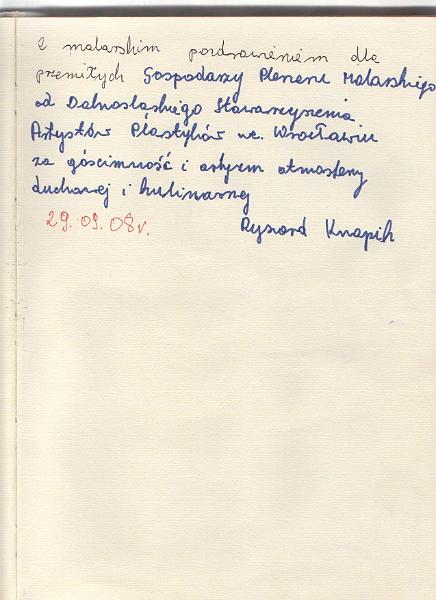 Z malarskim pozdrowieniem dla
przemiłych Gospodarzy Pleneru Malarskiego
od Dolnośląskiego Stowarzyszenia
Artystów Plastyków we. Wrocławiu
za gościnność i atmosfery
duchowej i kulinarnej
29.09.08r. Ryszard Knapik